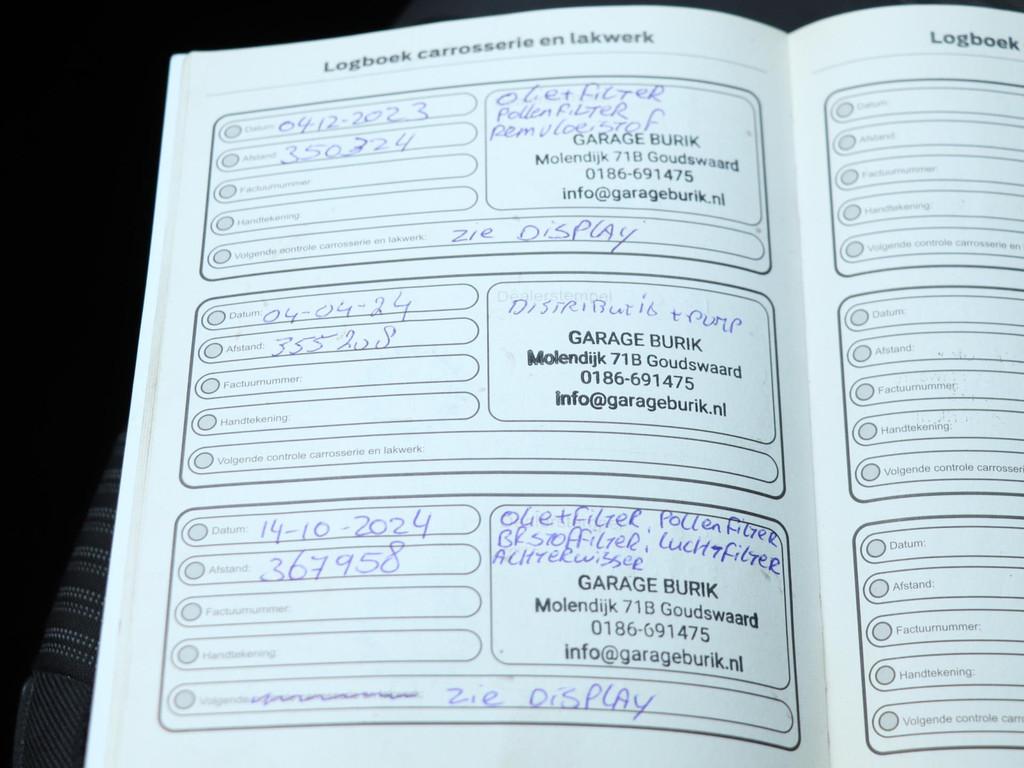 Logboek carrosserie en lakwerk
Datum: 04-12-2023
Afstand: 350224
Factuurnummer:
Handtekening:
Volgende controle carrosserie en lakwerk: zie DISPLAY
Olie+Filter
Pollenfilter
Remvloeistof
GARAGE BURIK
Molendijk 71B Goudswaard
0186-691475
info@garageburik.nl
Datum: 04-04-24
Afstand: 355208
Factuurnummer:
Handtekening:
Volgende controle carrosserie en lakwerk:
Dealerstempel
Distributie + Pomp
GARAGE BURIK
Molendijk 71B Goudswaard
0186-691475
info@garageburik.nl
Datum: 14-10-2024
Afstand: 367958
Factuurnummer:
Handtekening:
Volgende zie DISPLAY
Olie+Filter, Pollenfilter
BRSTOFFilter, Luchtfilter
Achterwisser
GARAGE BURIK
Molendijk 71B Goudswaard
0186-691475
info@garageburik.nl
Logboek
Datum:
Afstand:
Factuurnummer:
Handtekening:
Volgende controle carrosserie en
Datum:
Afstand:
Factuurnummer:
Handtekening:
Volgende controle carrosseri
Datum:
Afstand:
Factuurnummer:
Handtekening:
Volgende controle carr